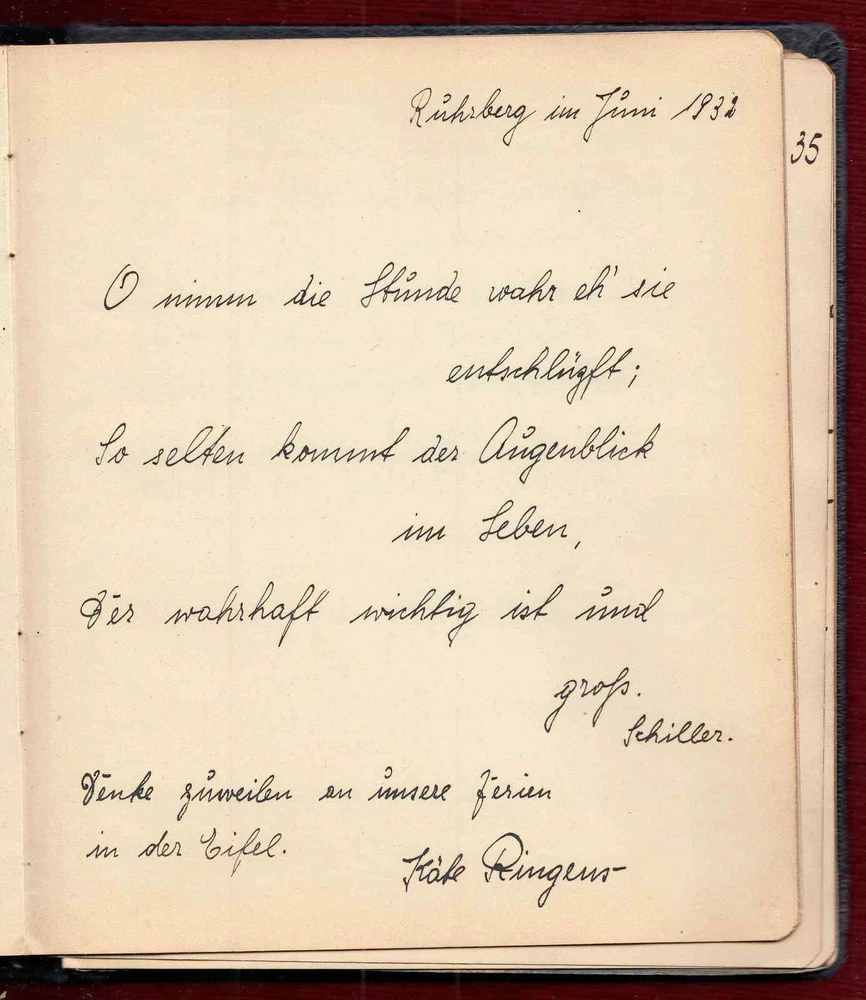 Ruhrberg im Juni 1932
35
O nimm die Stunde wahr eh' sie
entschlüpft;
So selten kommt der Augenblick
im Leben,
Der wahrhaft wichtig ist und
groß.
Schiller.
Denke zuweilen an unsere Ferien
in der Eifel.
Käte Ringens